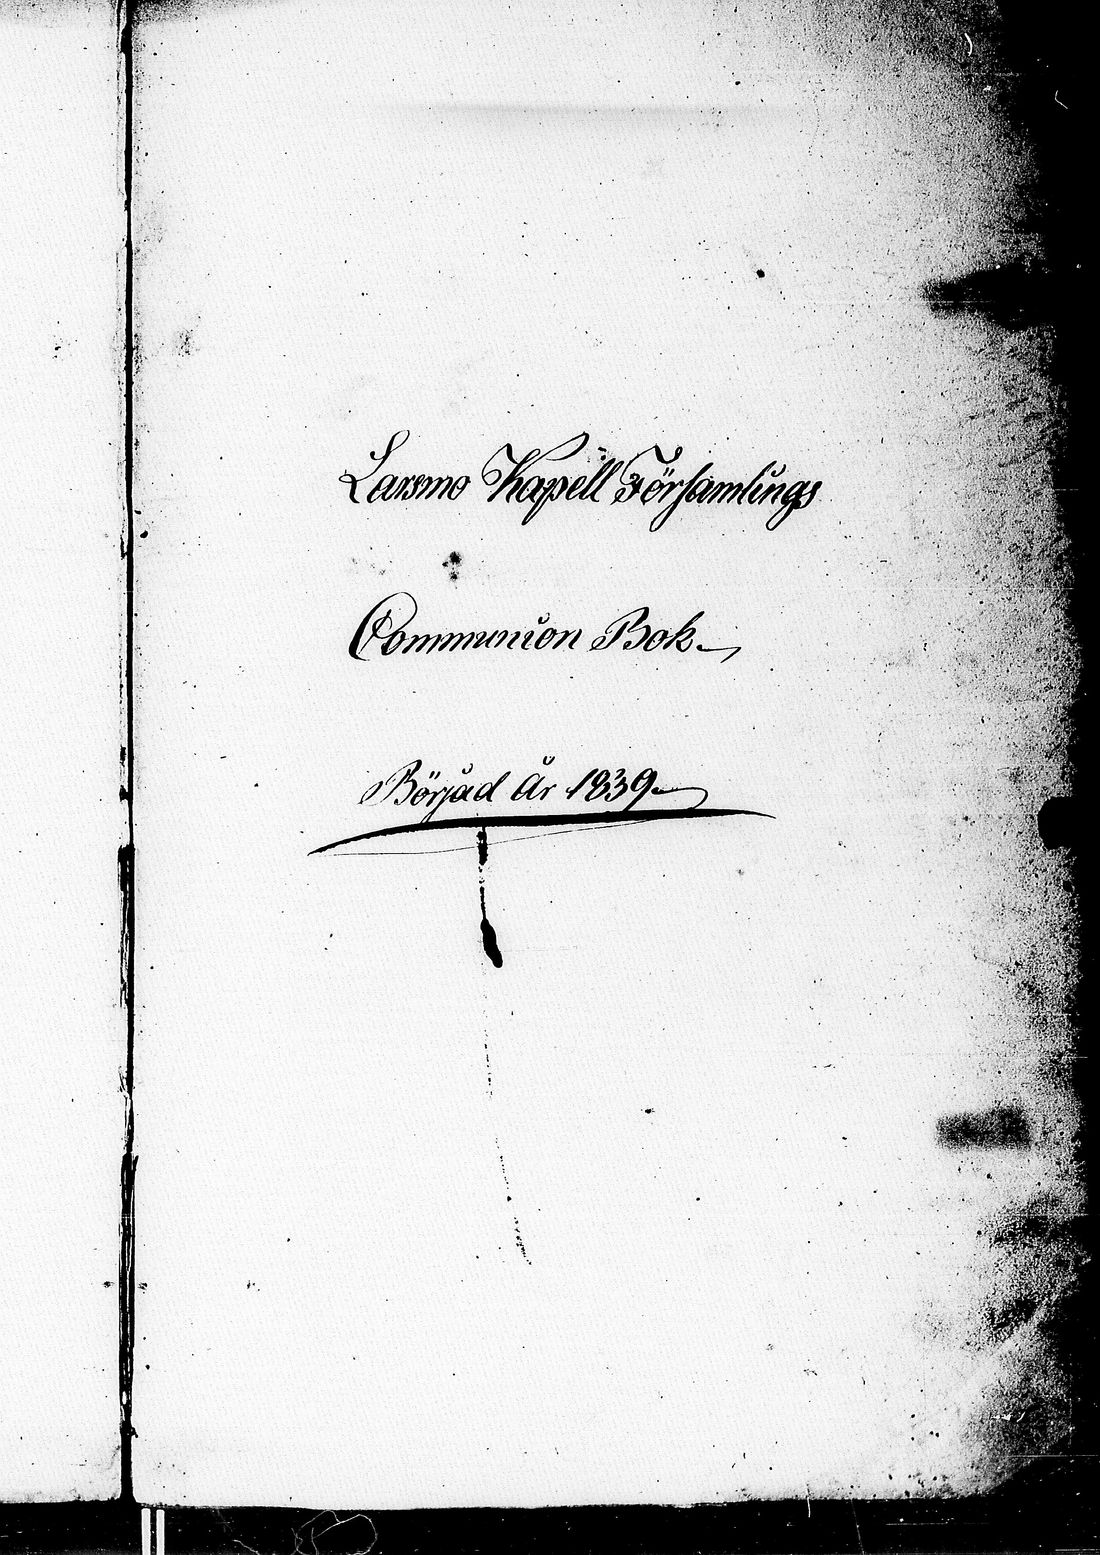 Larsmo Kapell Församlings
Communion Bok.
Börjad År 1839.